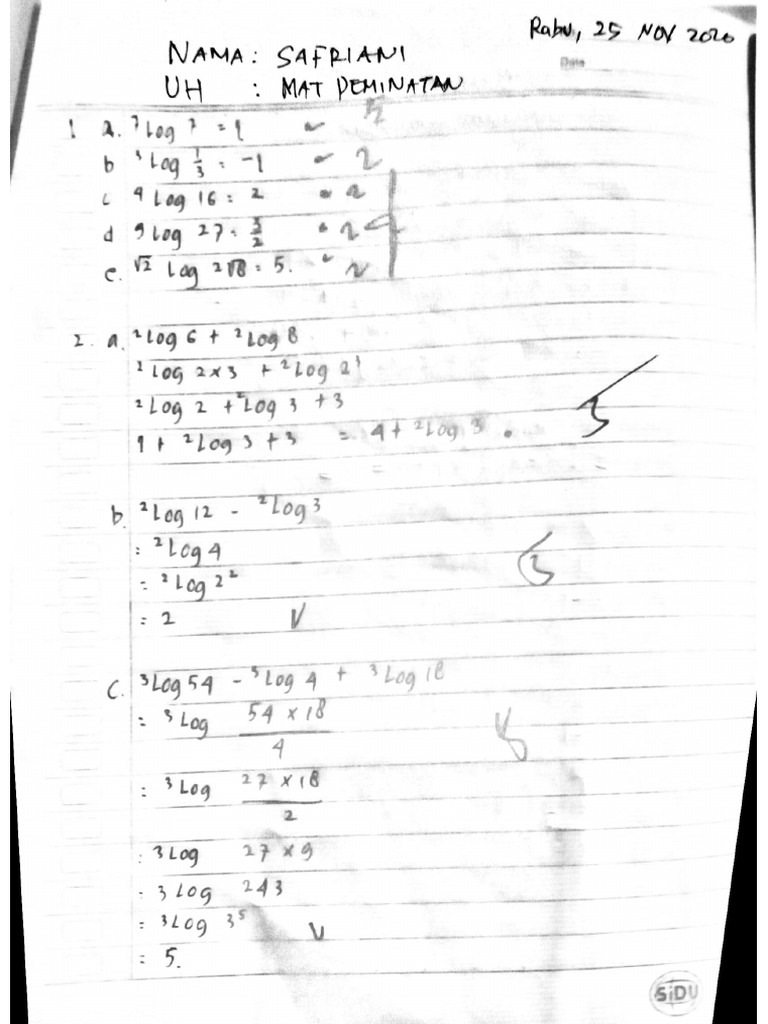 Rabu, 25 NOV 2020
Date
NAMA : SAFRIANI
UH : MAT PEMINATAN
1 a. ⁷Log 7 = 1
b ³Log 1/3 = -1 2
c ⁴Log 16 = 2 2
d ⁹Log 27 = 3/2 2
e. √2 Log 2√8 = 5. 2
2. a. ²Log 6 + ²Log 8
²Log 2x3 + ²Log 2³
²Log 2 + ²Log 3 + 3
1 + ²Log 3 + 3 = 4 + ²Log 3 .
b. ²Log 12 - ²Log 3
= ²Log 4
= ²Log 2²
= 2
c. ³Log 54 - ³Log 4 + ³Log 18
= ³Log 54 x 18 / 4
= ³Log 27 x 18 / 2
= 3Log 27 x 9
= 3Log 243
= ³Log 3⁵
= 5.
SiDU